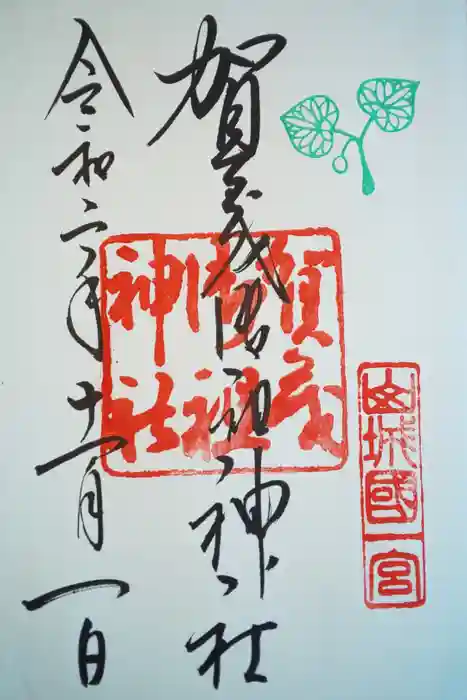 山城國一宮
賀茂御祖神社
賀茂
御祖
神社
令和二年十一月一日